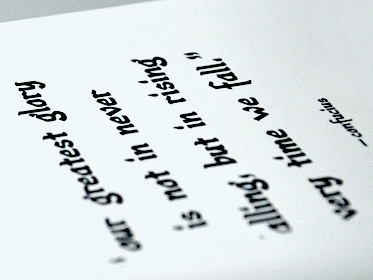 "our greatest glory
is not in never
alling, but in rising
very time we fall."
—confucius